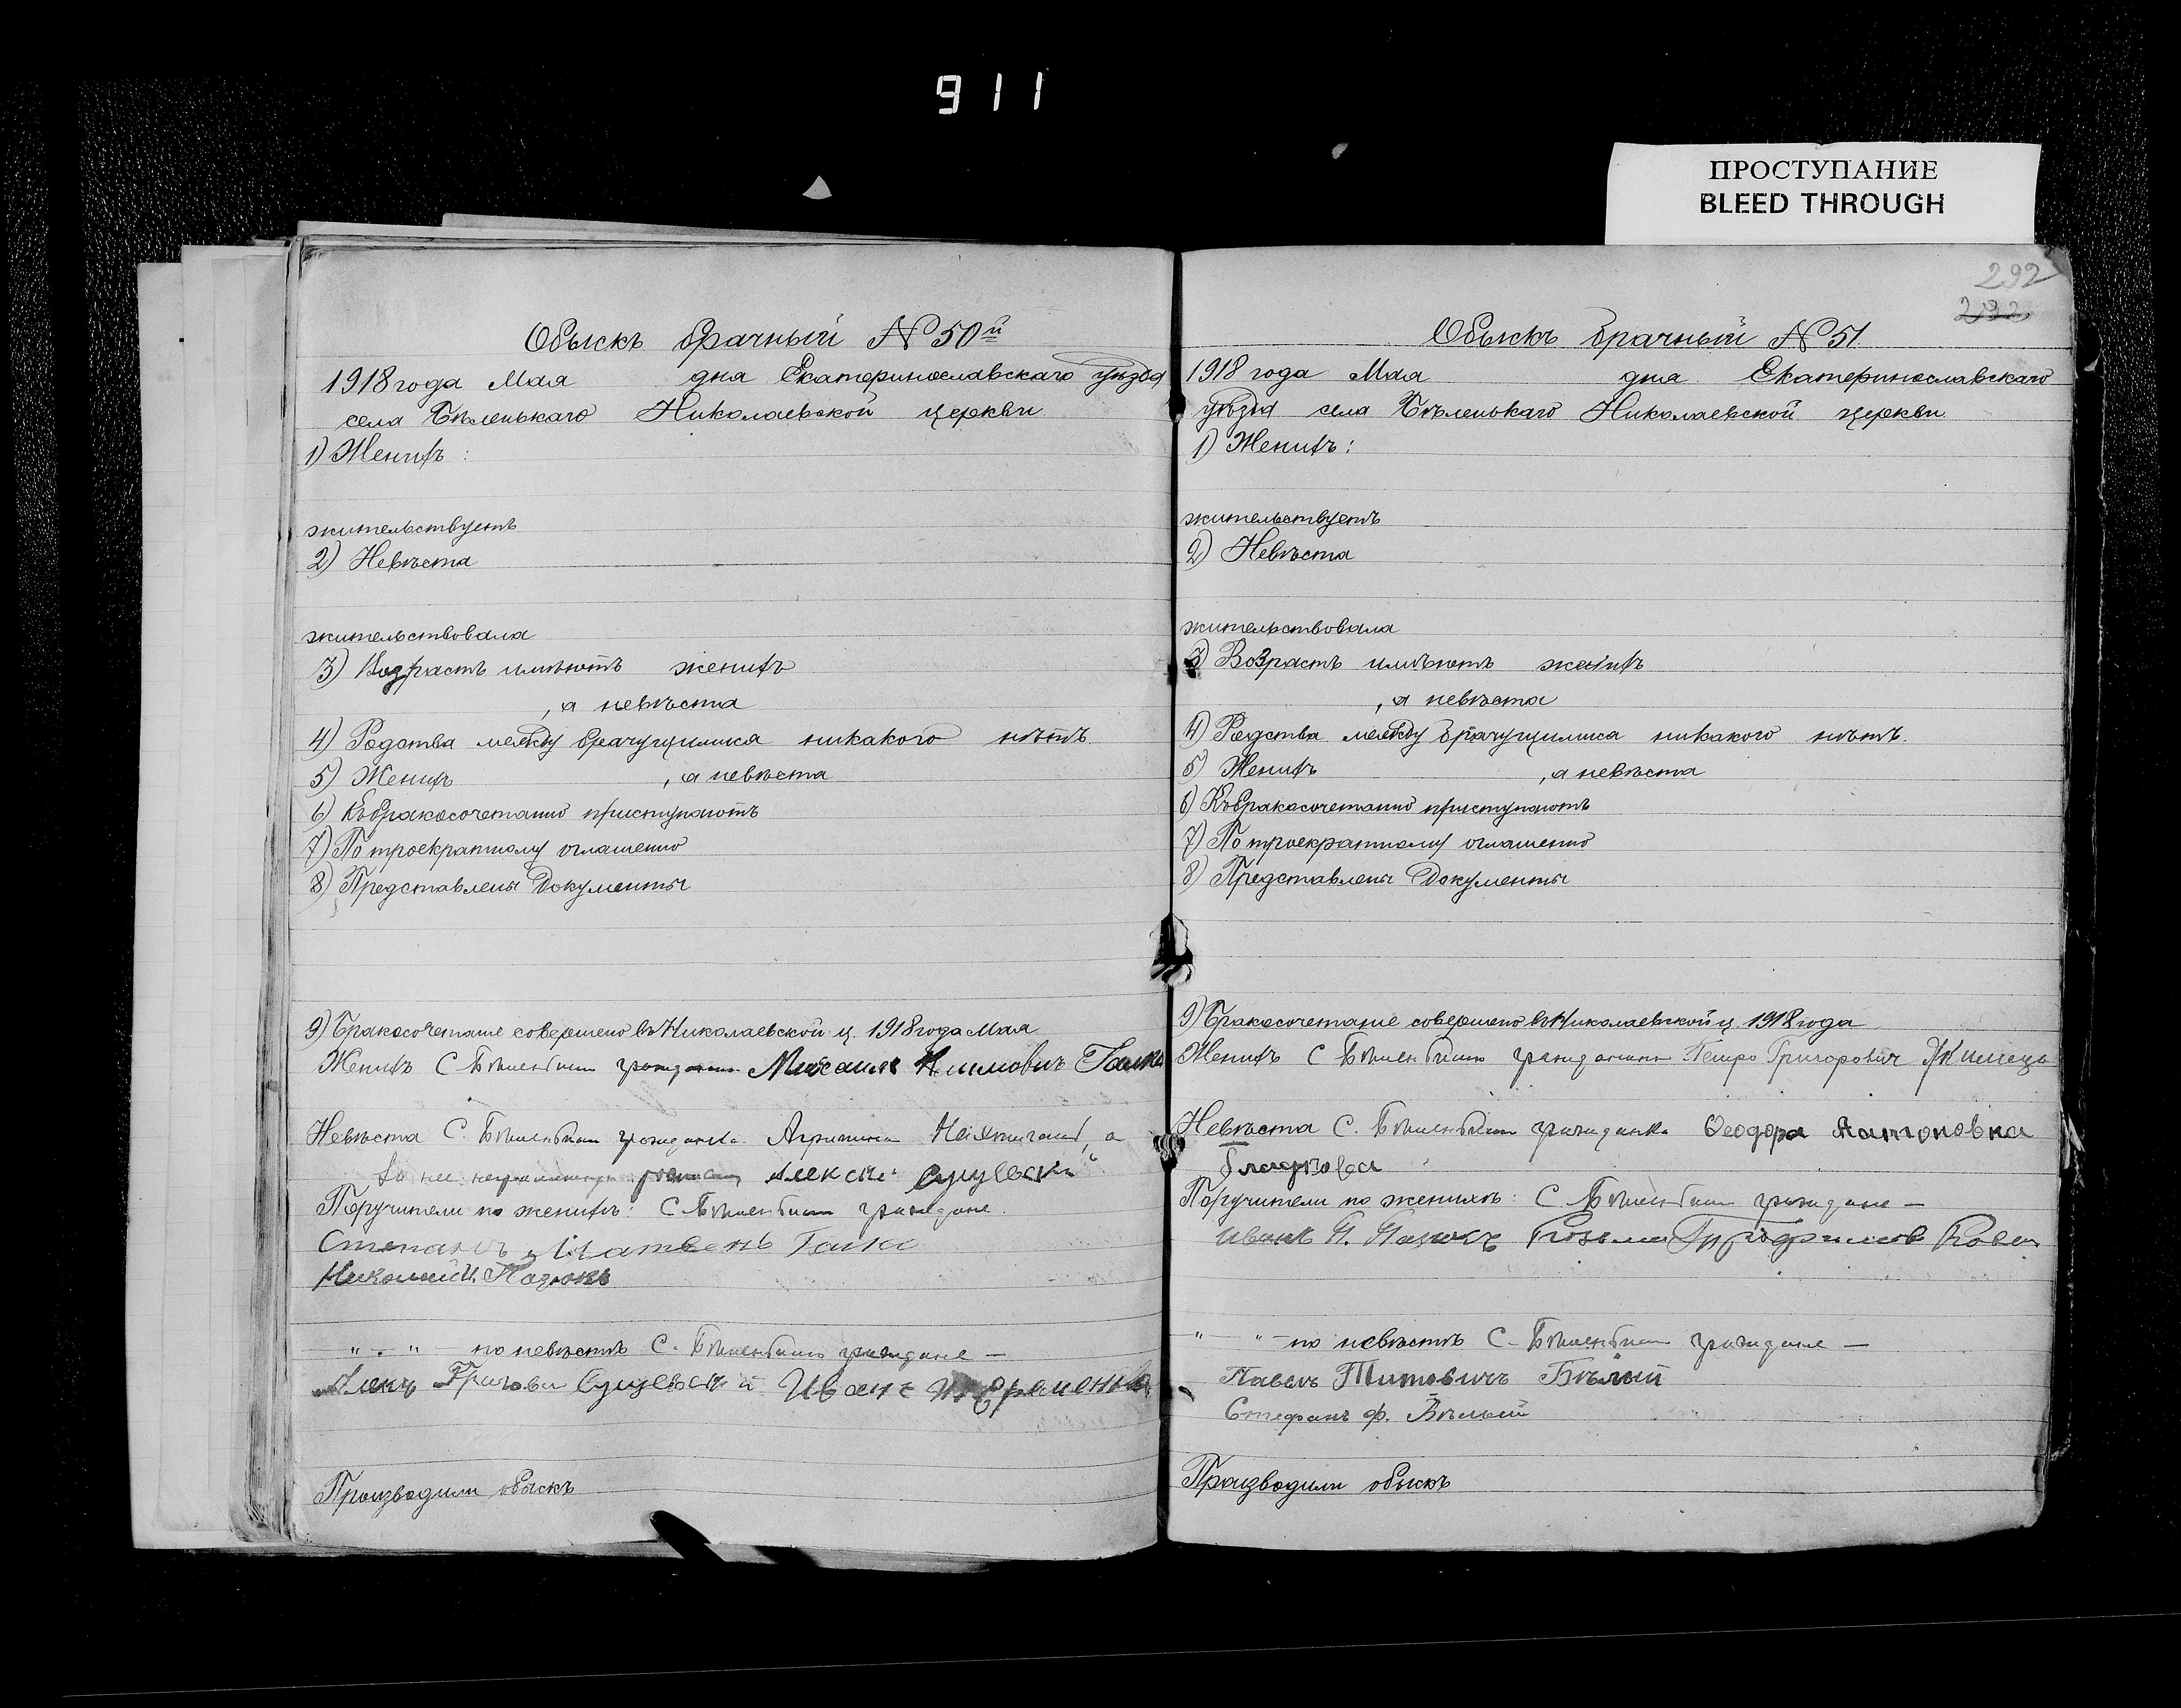 911
ПРОСТУПАНИЕ
BLEED THROUGH
Обыскъ брачный № 50й
1918 года Мая дня Екатеринославскаго уѣзда
села Бѣленькаго Николаевской церкви
1) Женихъ:
жительствуетъ
2) Невѣста
жительствовала
3) Возрастъ имѣютъ женихъ
, а невѣста
4) Родства между брачущимися никакого нѣтъ.
5) Женихъ , а невѣста
6) Къ бракосочетанію приступаютъ
7) По троекратному оглашенію
8) Представлены Документы
9) Бракосочетаніе совершено въ Николаевской ц. 1918 года Мая
Женихъ С. Бѣленькаго Михаилъ Климовичъ
Невѣста С. Бѣленькаго гражданка Агрипина
Алексѣй
Поручители по женихѣ: С. Бѣленькаго граждане.
Николай И. Пазюкъ
" . " по невѣстѣ С. Бѣленькаго граждане —
Иванъ
Производили обыскъ
292
292
Обыскъ брачный № 51
1918 года Мая дня Екатеринославскаго
уѣзда села Бѣленькаго Николаевской церкви
1) Женихъ:
жительствуетъ
2) Невѣста
жительствовала
3) Возрастъ имѣютъ женихъ
, а невѣста
4) Родства между брачущимися никакого нѣтъ.
5) Женихъ , а невѣста
6) Къ бракосочетанію приступаютъ
7) По троекратному оглашенію
8) Представлены Документы
9) Бракосочетаніе совершено въ Николаевской ц. 1918 года
Женихъ С. Бѣленькаго гражданинъ Петро Григоровичъ
Невѣста С. Бѣленькаго гражданка Ѳеодора Антоновна
Поручители по женихѣ: С. Бѣленькаго граждане —
" " по невѣстѣ С. Бѣленькаго граждане —
Павелъ Титовичъ Бѣлый
Стефанъ Ф. Бѣлый
Производили обыскъ